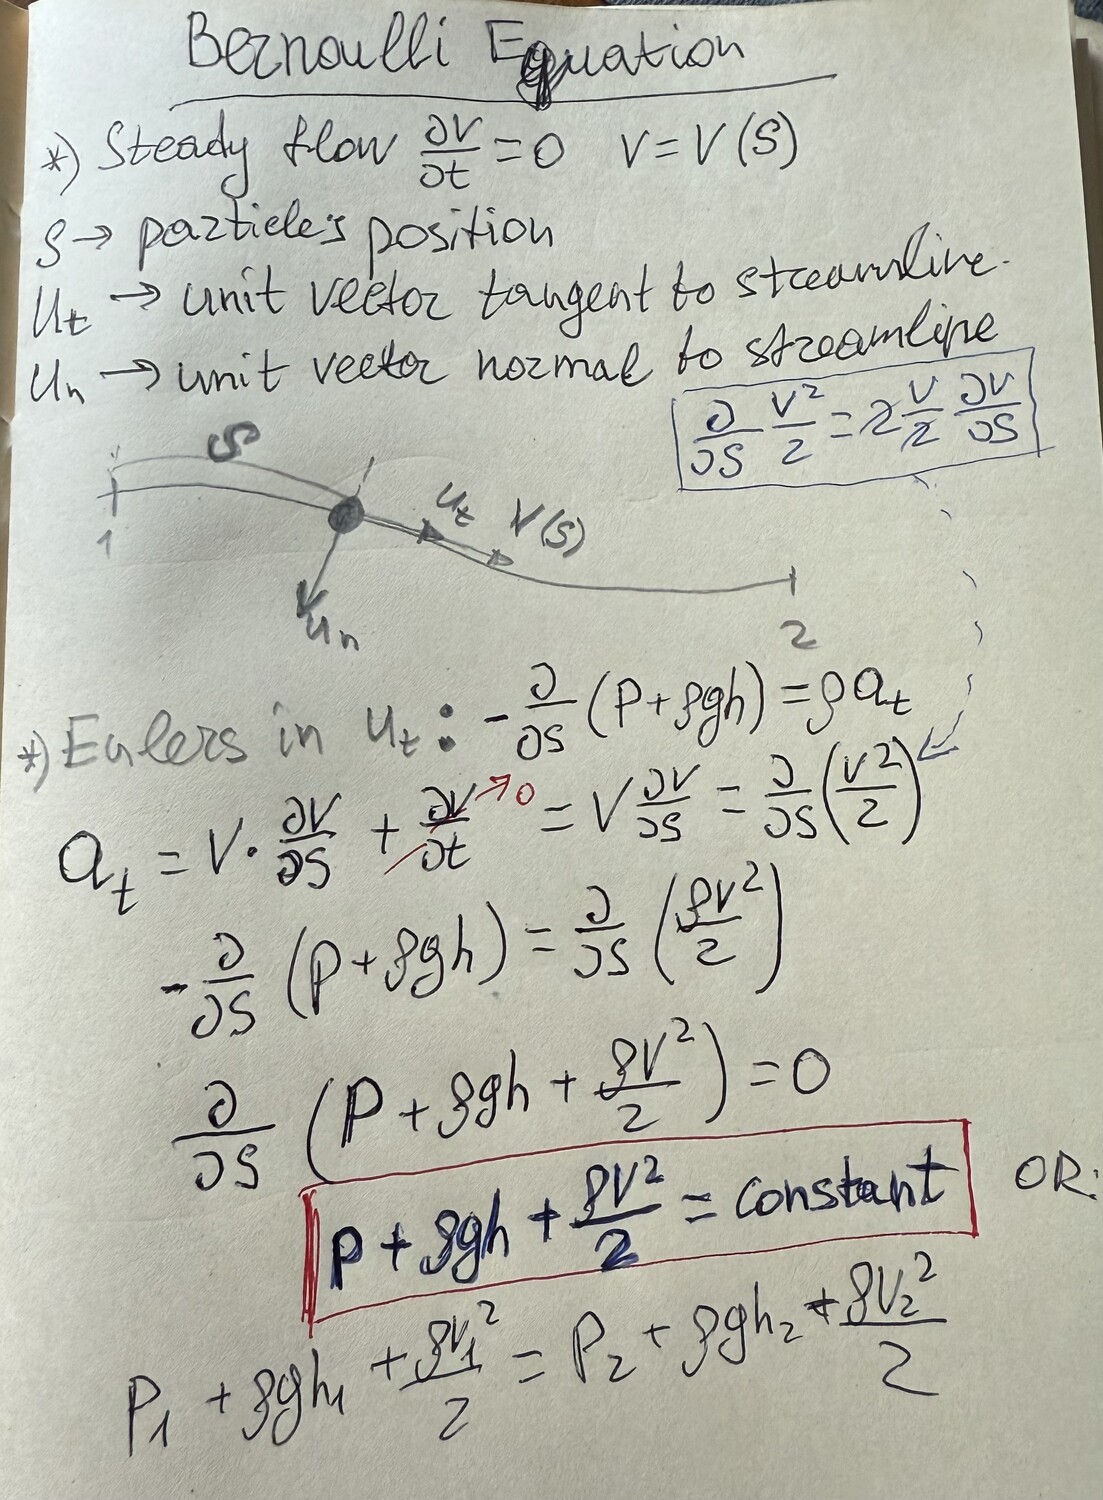 Bernoulli Equation
*) Steady flow ∂V/∂t = 0 V = V(S)
S → particle's position
u_t → unit vector tangent to streamline.
u_n → unit vector normal to streamline
∂/∂S V²/2 = 2 V/2 ∂V/∂S
S
1
u_t V(S)
u_n
2
*) Eulers in u_t : -∂/∂S (P + ρgh) = ρa_t
a_t = V · ∂V/∂S + ∂V/∂t → 0 = V ∂V/∂S = ∂/∂S (V²/2)
-∂/∂S (P + ρgh) = ∂/∂S (ρV²/2)
∂/∂S (P + ρgh + ρV²/2) = 0
P + ρgh + ρV²/2 = constant OR:
P₁ + ρgh₁ + ρV₁²/2 = P₂ + ρgh₂ + ρV₂²/2